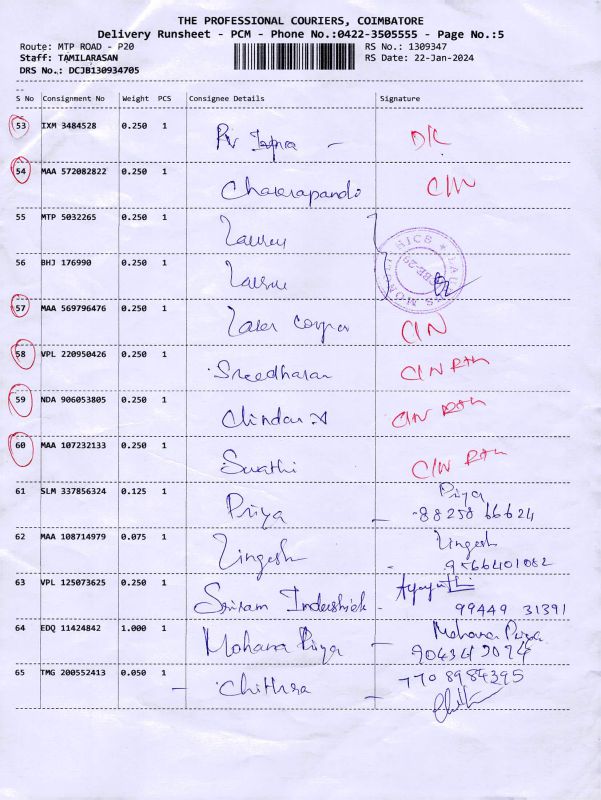 THE PROFESSIONAL COURIERS, COIMBATORE
Delivery Runsheet - PCM - Phone No.:0422-3505555 - Page No.:5
Route: MTP ROAD - P20 RS No.: 1309347
Staff: TAMILARASAN RS Date: 22-Jan-2024
DRS No.: DCJB130934705
S No Consignment No Weight PCS Consignee Details Signature
53 IXM 3484528 0.250 1
54 MAA 572082822 0.250 1 C/N
55 MTP 5032265 0.250 1
56 BHJ 176990 0.250 1
57 MAA 569796476 0.250 1 C/N
58 VPL 220950426 0.250 1 Sreedharan C/N
59 NDA 906053805 0.250 1 C/N
60 MAA 107232133 0.250 1 Swathi C/N
61 SLM 337856324 0.125 1 Priya Priya
88258 66624
62 MAA 108714979 0.075 1 Lingesh Lingesh
9566401082
63 VPL 125073625 0.250 1 Sriram
99449 31391
64 EDQ 11424842 1.000 1 Mohana Priya Mohana Priya
65 TMG 200552413 0.050 1 Chithra 7708984395